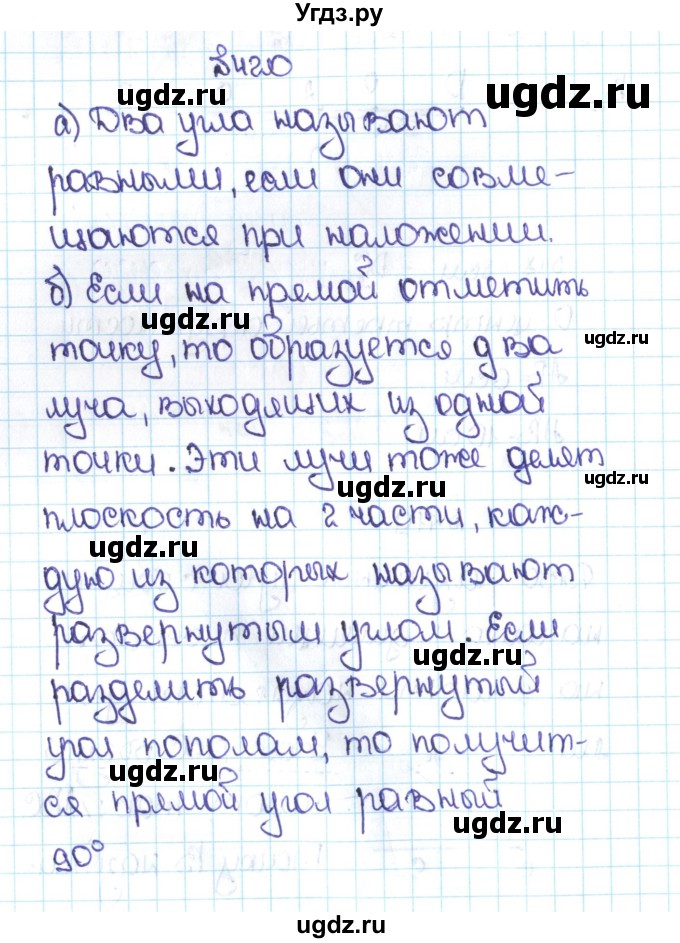 Угдз.ру
№420
ugdz.ru ugdz.ru
а) Два угла называют
равными, если они совме-
щаются при наложении.
б) Если на прямой отметить
ugdz.ru ugdz.ru
точку, то образуется два
луча, выходящих из одной
точки. Эти лучи тоже делят
ugdz.ru ugdz.ru
плоскость на 2 части, каж-
ugdz.ru
дую из которых называют
развернутым углом. Если
ugdz.ru
разделить развернутый
угол пополам, то получит-
ugdz.ru
ся прямой угол равный
ugdz.ru
90°
ugdz.ru